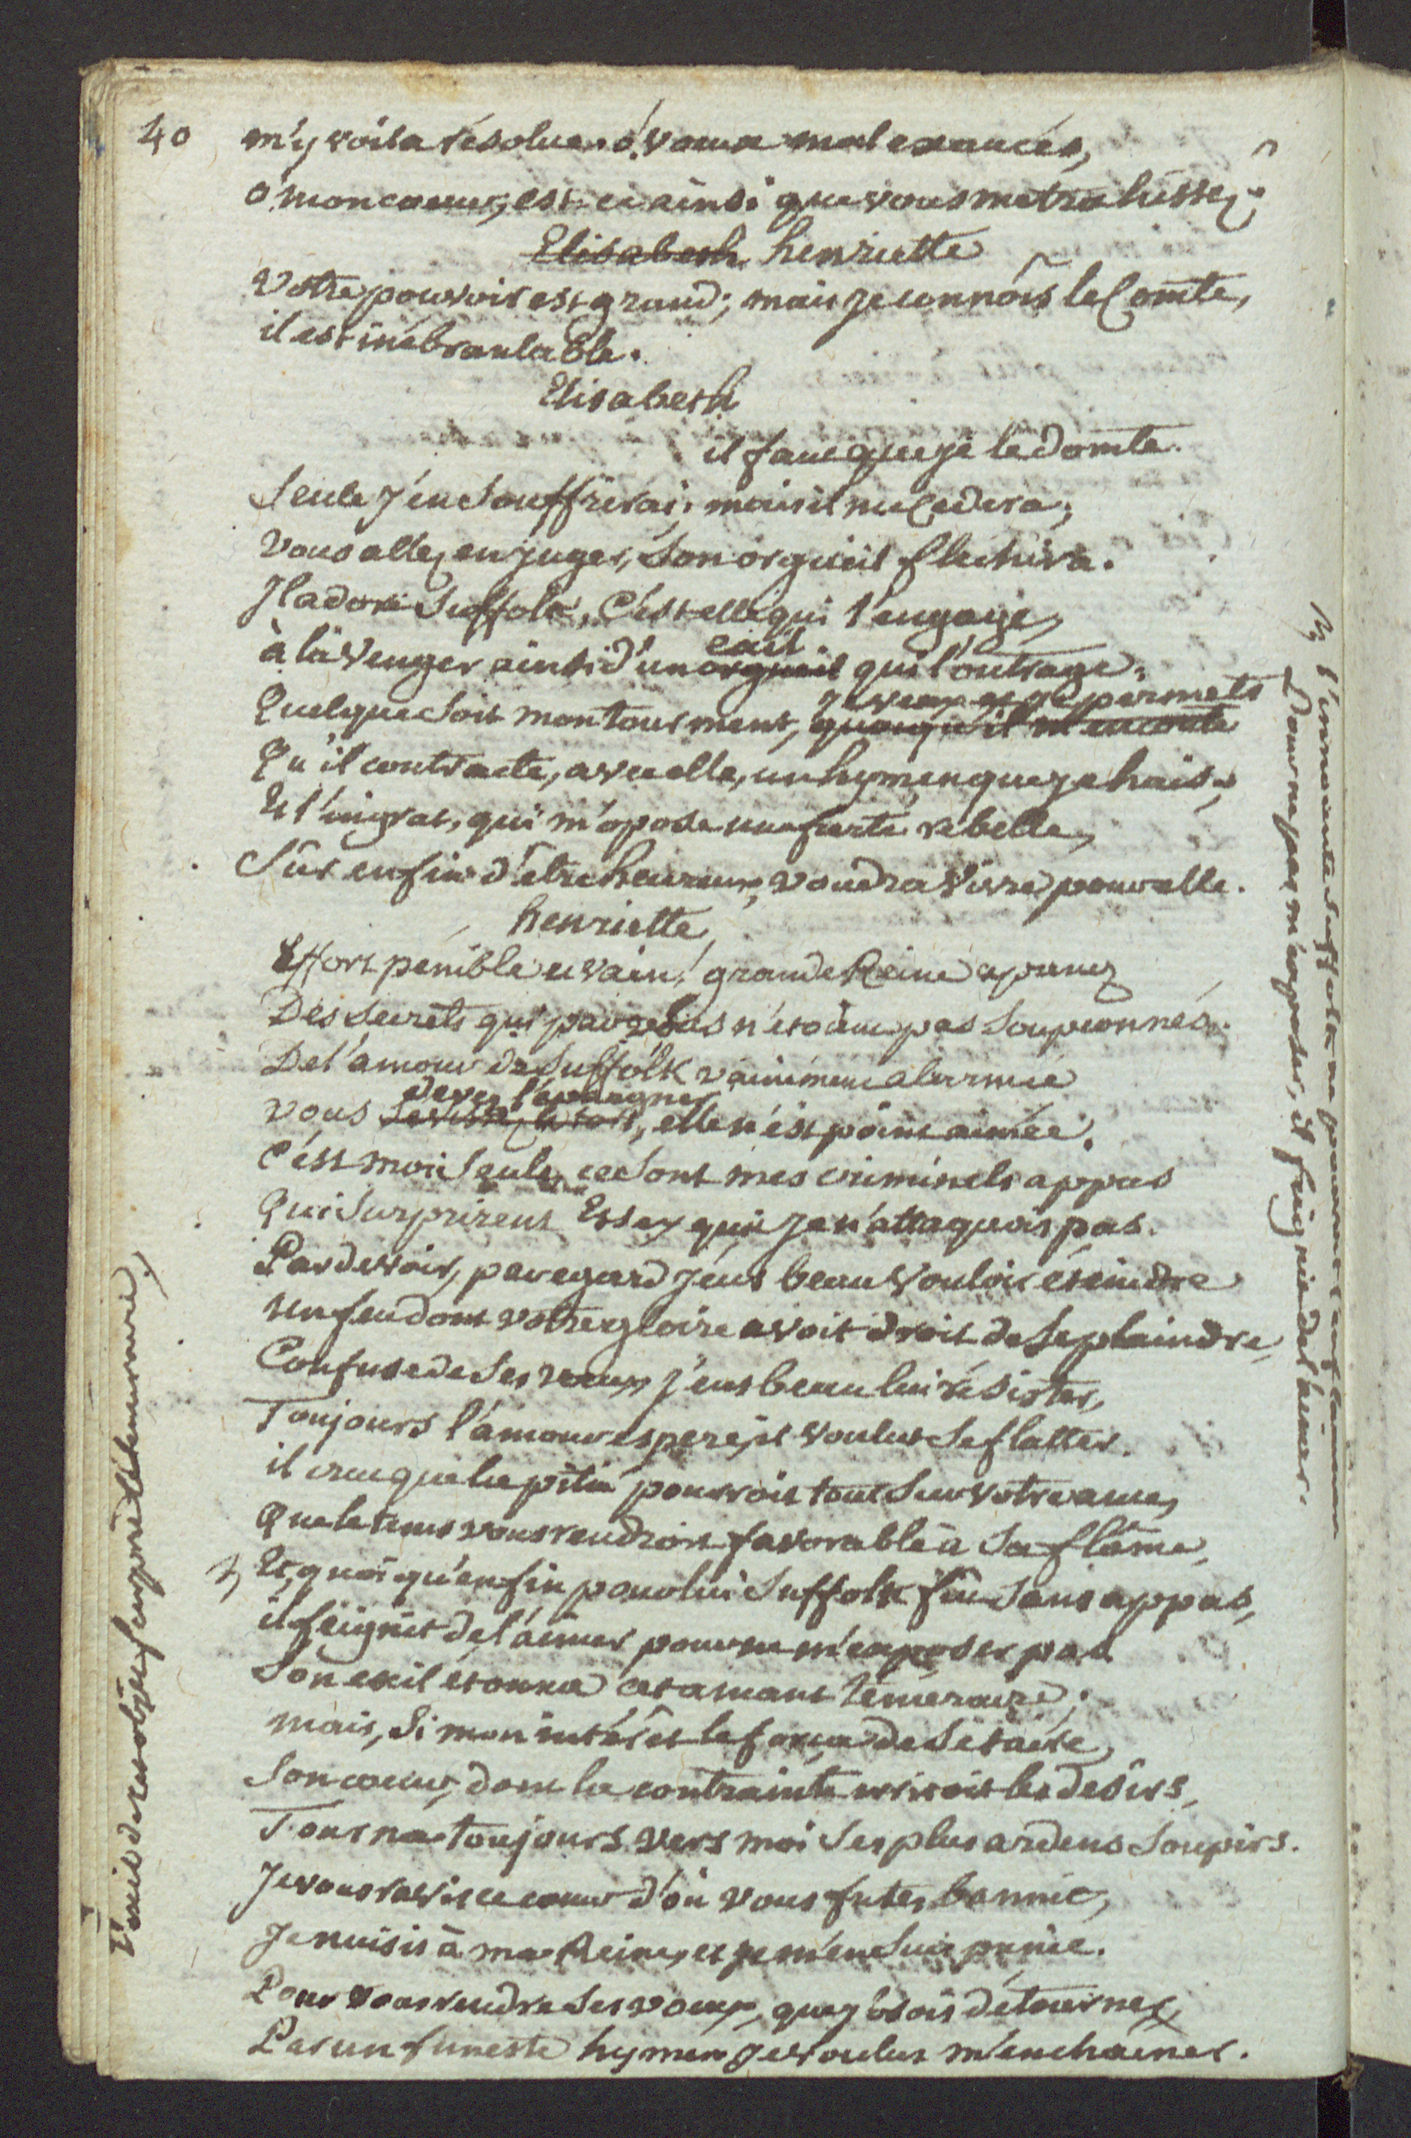 40
m'y voila résolue. ô! voeux mal exaucés,
ô! mon coeur, est-ce ainsi que vous me trahissez?
Elisabeth henriette
Votre pouvoir est grand; mais je connôis le Comte,
il est inébranlable.
Elisabeth
il faut que je le domte.
Seule j'en Souffrirai; mais il me Cedera;
Vous allez en juger, Son orgueil flechira.
Il adore Suffolk, C'est elle qui l'engage,
à la Venger ainsi d'un orgueil exil qui l'outrage;
Quelque Soit mon tourment, quoiqu'il m'en coute je veux et je permets
Qu'il contracte, avec elle, un hymen que je hais;
Et l'ingrat, qui m'opose une fierté rebelle,
Sûr enfin d'être heureux, voudra Vivre pour elle.
henriette
Effort pénible et vain! grande Reine aprenez
Des Secrets qui par vous n'etoient pas Soupçonnés.
De l'amour de Suffolk vainement alarmée
Vous devez l'épargner, elle n'est point aimée.
C'est moi Seule, ce Sont mes criminels appas
Qui Surprirent Essex que je n'attaquois pas.
Par devoir, par egard j'eus beau Vouloir éteindre
Un feu dont votre gloire avoit droit de Se plaindre,
Confuse de Ses voeux j'eus beau lui résister,
Toujours l'amour espere, et voulut Se flatter.
il crut que la pitié pourroit tout Sur votre ame,
Que le tems vous rendroit favorable à Sa flâme,
Et, quoi qu'enfin pour lui Suffolk fût Sans appas,
il feignit de l'aimer pour ne m'exposer pas
Son exil etonna cet amant téméraire;
mais, Si mon intérêt le força de Se taire,
Son coeur, dont la contrainte irritoit les desirs,
Tourna toujours vers moi Ses plus ardens Soupirs.
Je vous ravis ce coeur d'où vous futes bannie,
Je nuisis à ma Reine, et je m'en Suis punie.
Pour vous rendre Ses voeux, que j'osois détourner,
Par un funeste hymen je voulus m'enchaîner.
l'innocente Suffolk ne pouvant l'enflammer
Pour ne pas m'exposer, il feignit de l'aimer.
L'exil de cet objet surprit le téméraire,